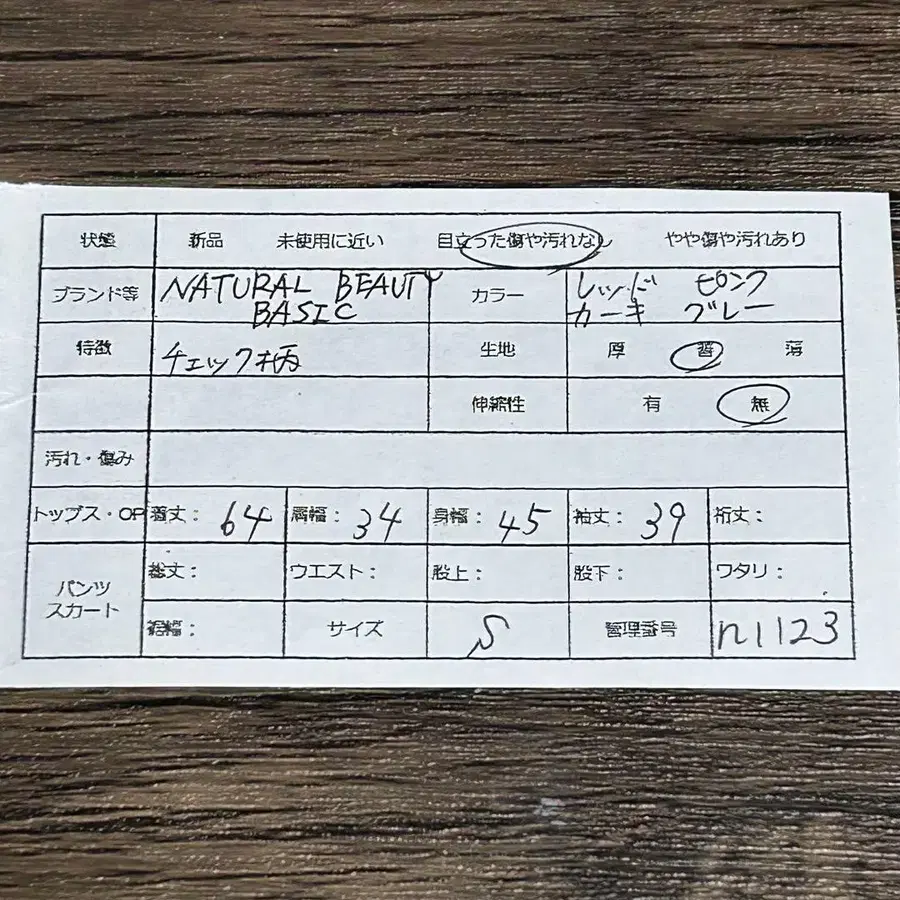 状態 新品 未使用に近い 目立った傷や汚れなし やや傷や汚れあり
ブランド等 NATURAL BEAUTY BASIC カラー レッド ピンク
カーキ グレー
特徴 チェック柄 生地 厚 普 薄
伸縮性 有 無
汚れ・傷み
トップス・OP 着丈: 64 肩幅: 34 身幅: 45 袖丈: 39 裄丈:
パンツ スカート 総丈: ウエスト: 股上: 股下: ワタリ:
裾幅: サイズ S 管理番号 n1123